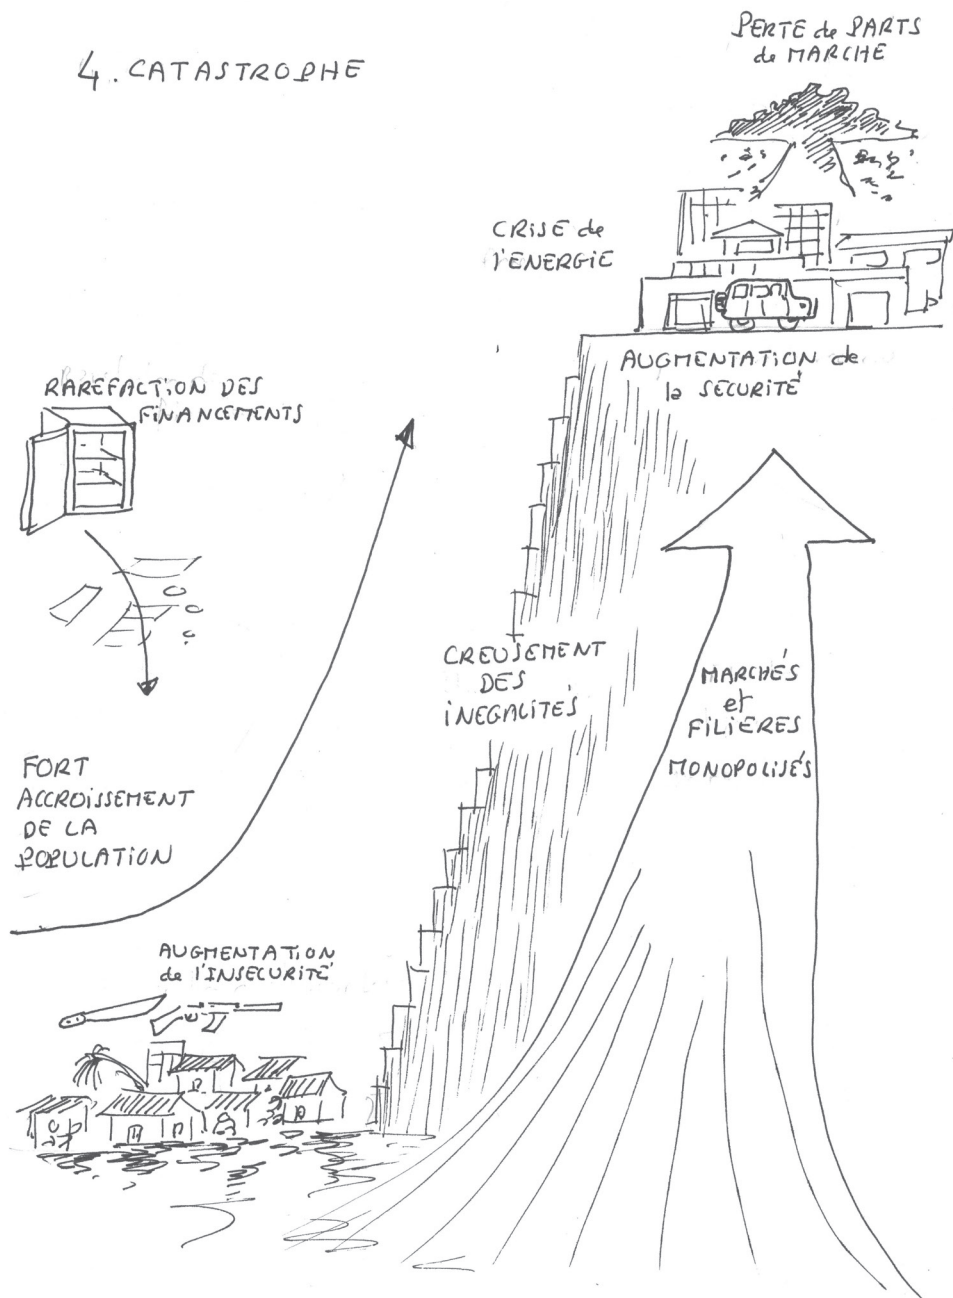 4. CATASTROPHE
PERTE de PARTS
de MARCHE
CRISE de
l'ENERGIE
AUGMENTATION de
la SECURITÉ
RAREFACTION DES
FINANCEMENTS
CREUSEMENT
DES
INEGALITÉS
MARCHÉS
et
FILIERES
MONOPOLISÉS
FORT
ACCROISSEMENT
DE LA
POPULATION
AUGMENTATION
de l'INSECURITÉ